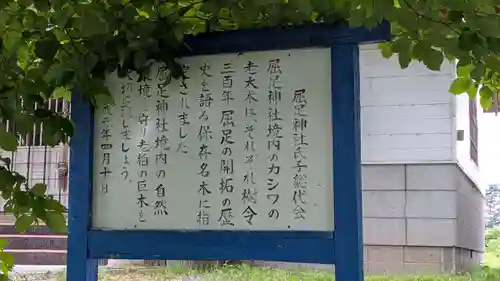 屈足神社氏子総代会
屈足神社境内のカシワの
老大木は、それぞれ樹令
三百年 屈足の開拓の歴
史を語る保存名木に指
定されました
屈足神社境内の自然
環境を守り老柏の巨木を
大切にしましょう。
二年四月十日